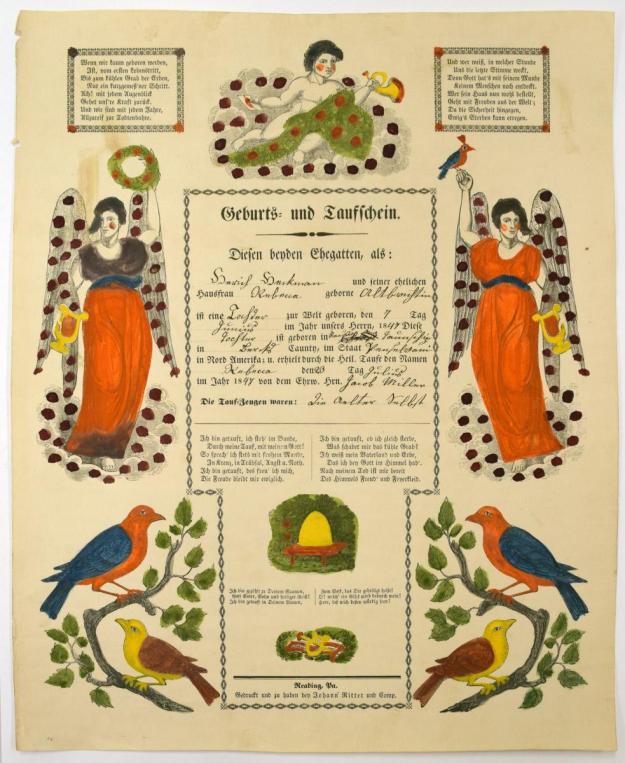 Wenn wir kaum geboren werden,
Ist, vom ersten Lebenstritt,
Bis zum kühlen Grab der Erden,
Nur ein kurzgemeß'ner Schritt.
Ach! mit jedem Augenblick
Gehet uns're Kraft zurück.
Und wir sind mit jedem Jahre,
Allzureif zur Todtenbahre.
Und wer weiß, in welcher Stunde
Uns die letzte Stimme weckt,
Denn Gott hat's mit seinem Munde
Keinem Menschen noch entdeckt.
Wer sein Haus nun wohl bestellt,
Geht mit Freuden aus der Welt;
Da die Sicherheit hingegen,
Ewig's Sterben kann erregen.
Geburts- und Taufschein.
Diesen beyden Ehegatten, als:
Heckman und seiner ehelichen
Hausfrau Rebecca geborne
ist eine Tochter zur Welt geboren, den 7 Tag
Junius im Jahr unsers Herrn, 1847 Diese
Tochter ist geboren in
in Berks Caunty, im Staat
in Nord Amerika; u. erhielt durch die Heil. Taufe den Namen
Rebecca den 25 Tag Julius
im Jahr 1847 von dem Ehrw. Hrn. Jacob Miller
Die Tauf-Zeugen waren: Die Aelter Selbst
Ich bin getauft, ich steh' im Bunde,
Durch meine Tauf, mit meinem Gott!
So sprech' ich stets mit frohem Munde,
In Kreuz, in Trübsal, Angst u. Noth.
Ich bin getauft, deß freu' ich mich,
Die Freude bleibt mir ewiglich.
Ich bin getauft, ob ich gleich sterbe,
Was schadet mir das kühle Grab?
Ich weiß mein Vaterland und Erbe,
Das ich bey Gott im Himmel hab'.
Nach meinem Tod ist mir bereit
Des Himmels Freud' und Feyerkleid.
Ich bin getauft in Deinem Namen,
Reading, Pa.
Gedruckt und zu haben bey Johann Ritter und Comp.